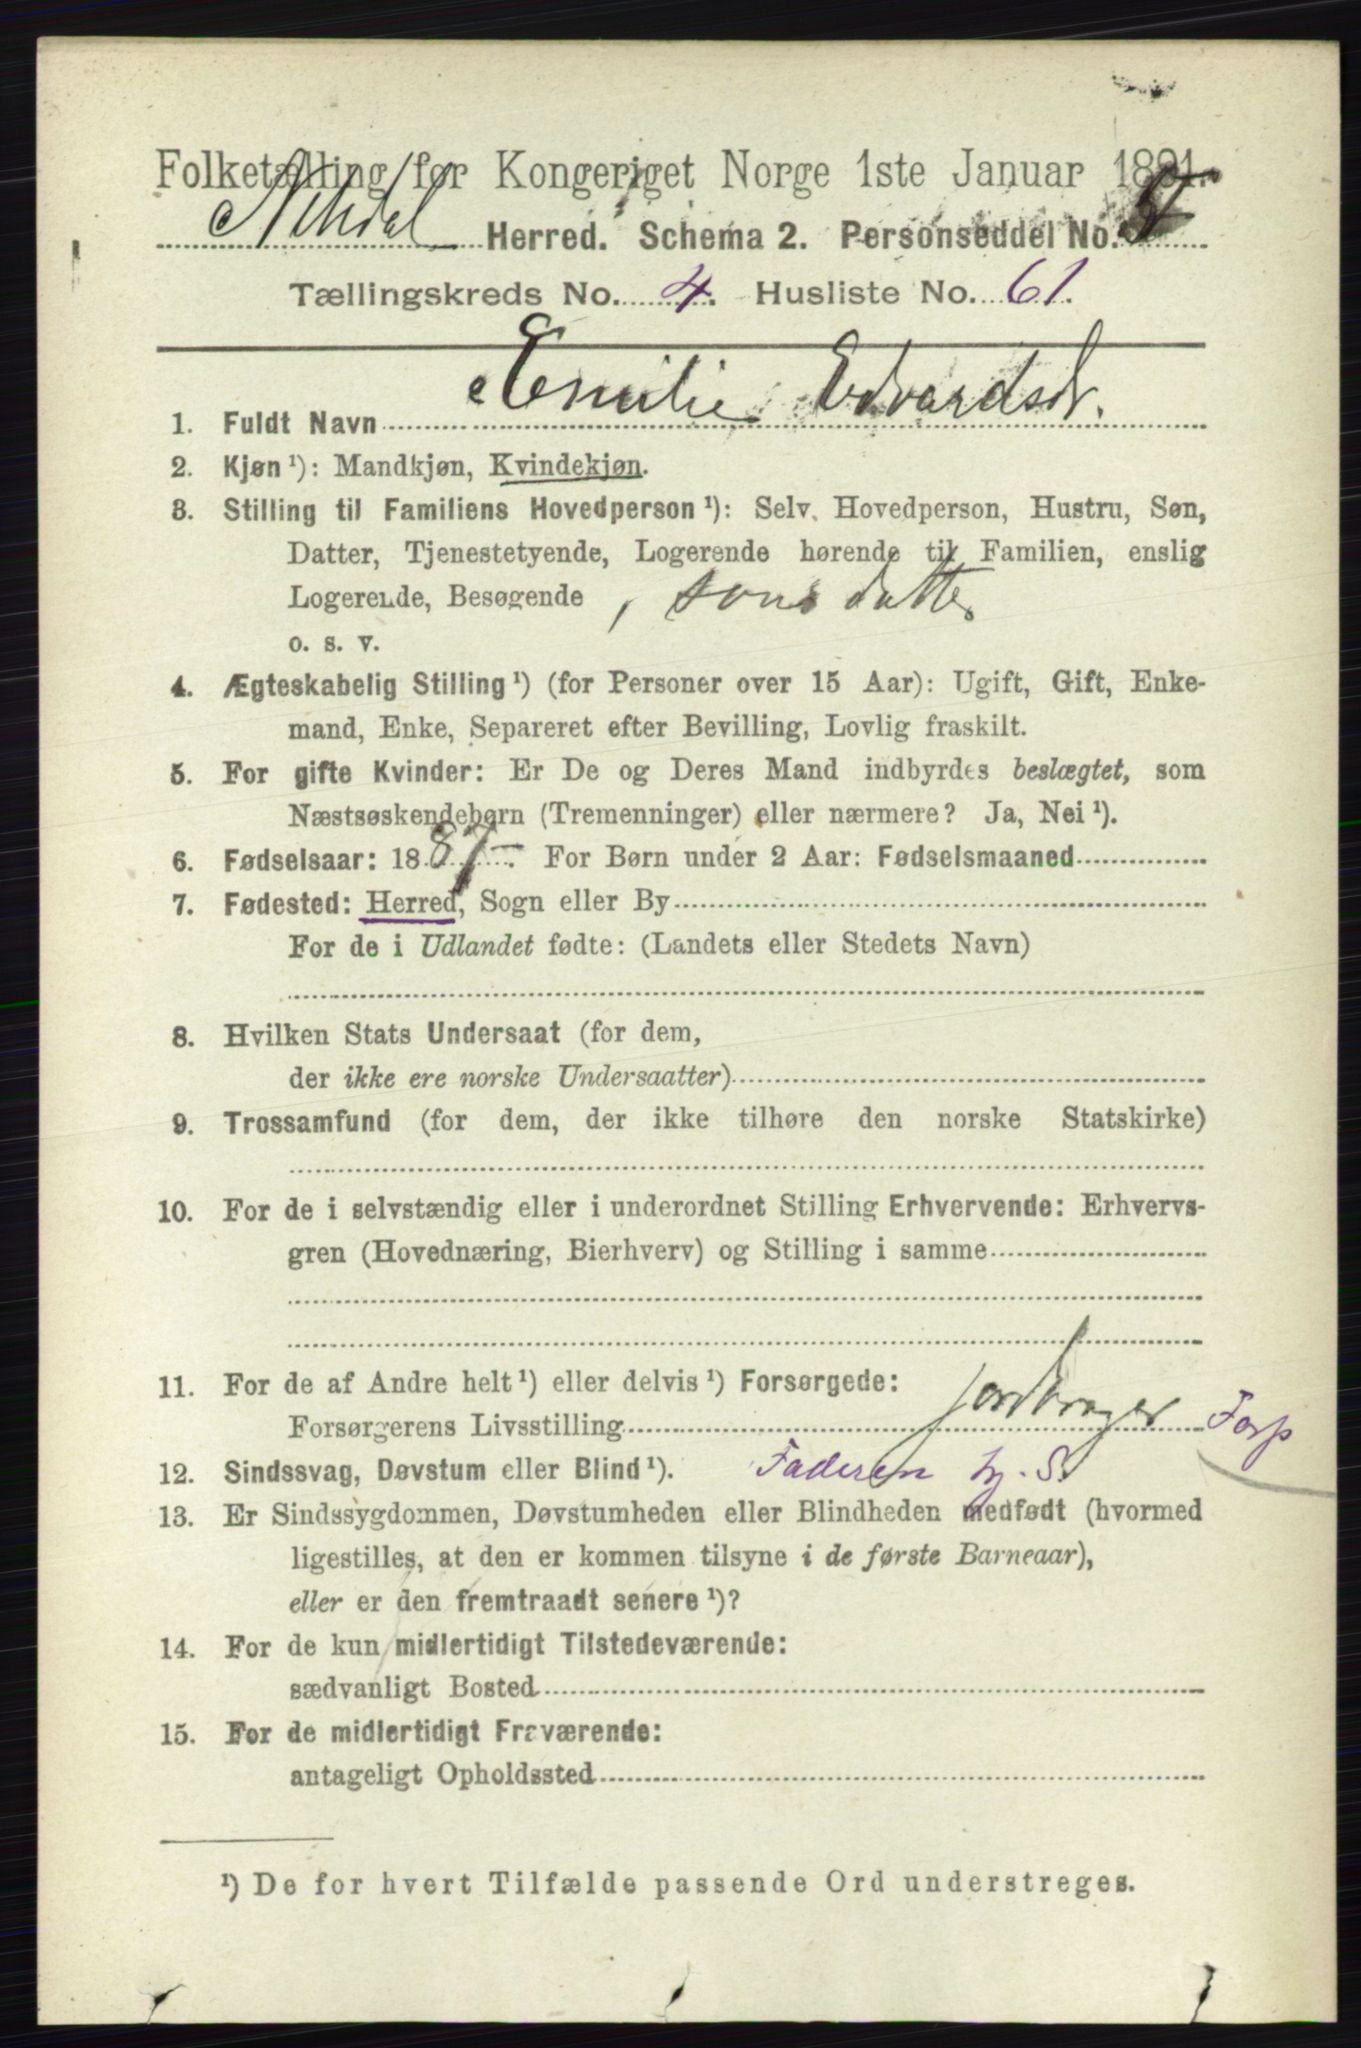 Folketælling for Kongeriget Norge 1ste Januar 1891.
Nitedal Herred. Schema 2. Personseddel No.
Tællingskreds No. 4. Husliste No. 61.
1. Fuldt Navn Emilie Edvardsdt.
2. Kjøn ¹): Mandkjøn, Kvindekjøn.
3. Stilling til Familiens Hovedperson ¹): Selv Hovedperson, Hustru, Søn,
Datter, Tjenestetyende, Logerende hørende til Familien, enslig
Logerende, Besøgende , sønsdatter
o. s. v.
4. Ægteskabelig Stilling ¹) (for Personer over 15 Aar): Ugift, Gift, Enke-
mand, Enke, Separeret efter Bevilling, Lovlig fraskilt.
5. For gifte Kvinder: Er De og Deres Mand indbyrdes beslægtet, som
Næstsøskendebørn (Tremenninger) eller nærmere? Ja, Nei ¹).
6. Fødselsaar: 1887. For Børn under 2 Aar: Fødselsmaaned
7. Fødested: Herred, Sogn eller By
For de i Udlandet fødte: (Landets eller Stedets Navn)
8. Hvilken Stats Undersaat (for dem,
der ikke ere norske Undersaatter)
9. Trossamfund (for dem, der ikke tilhøre den norske Statskirke)
10. For de i selvstændig eller i underordnet Stilling Erhvervende: Erhvervs-
gren (Hovednæring, Bierhverv) og Stilling i samme
11. For de af Andre helt ¹) eller delvis ¹) Forsørgede:
Forsørgerens Livsstilling jordbruger Forp
12. Sindssvag, Døvstum eller Blind ¹). Faderen hj. S.
13. Er Sindssygdommen, Døvstumheden eller Blindheden medfødt (hvormed
ligestilles, at den er kommen tilsyne i de første Barneaar),
eller er den fremtraadt senere ¹)?
14. For de kun midlertidigt Tilstedeværende:
sædvanligt Bosted
15. For de midlertidigt Fraværende:
antageligt Opholdssted
¹) De for hvert Tilfælde passende Ord understreges.